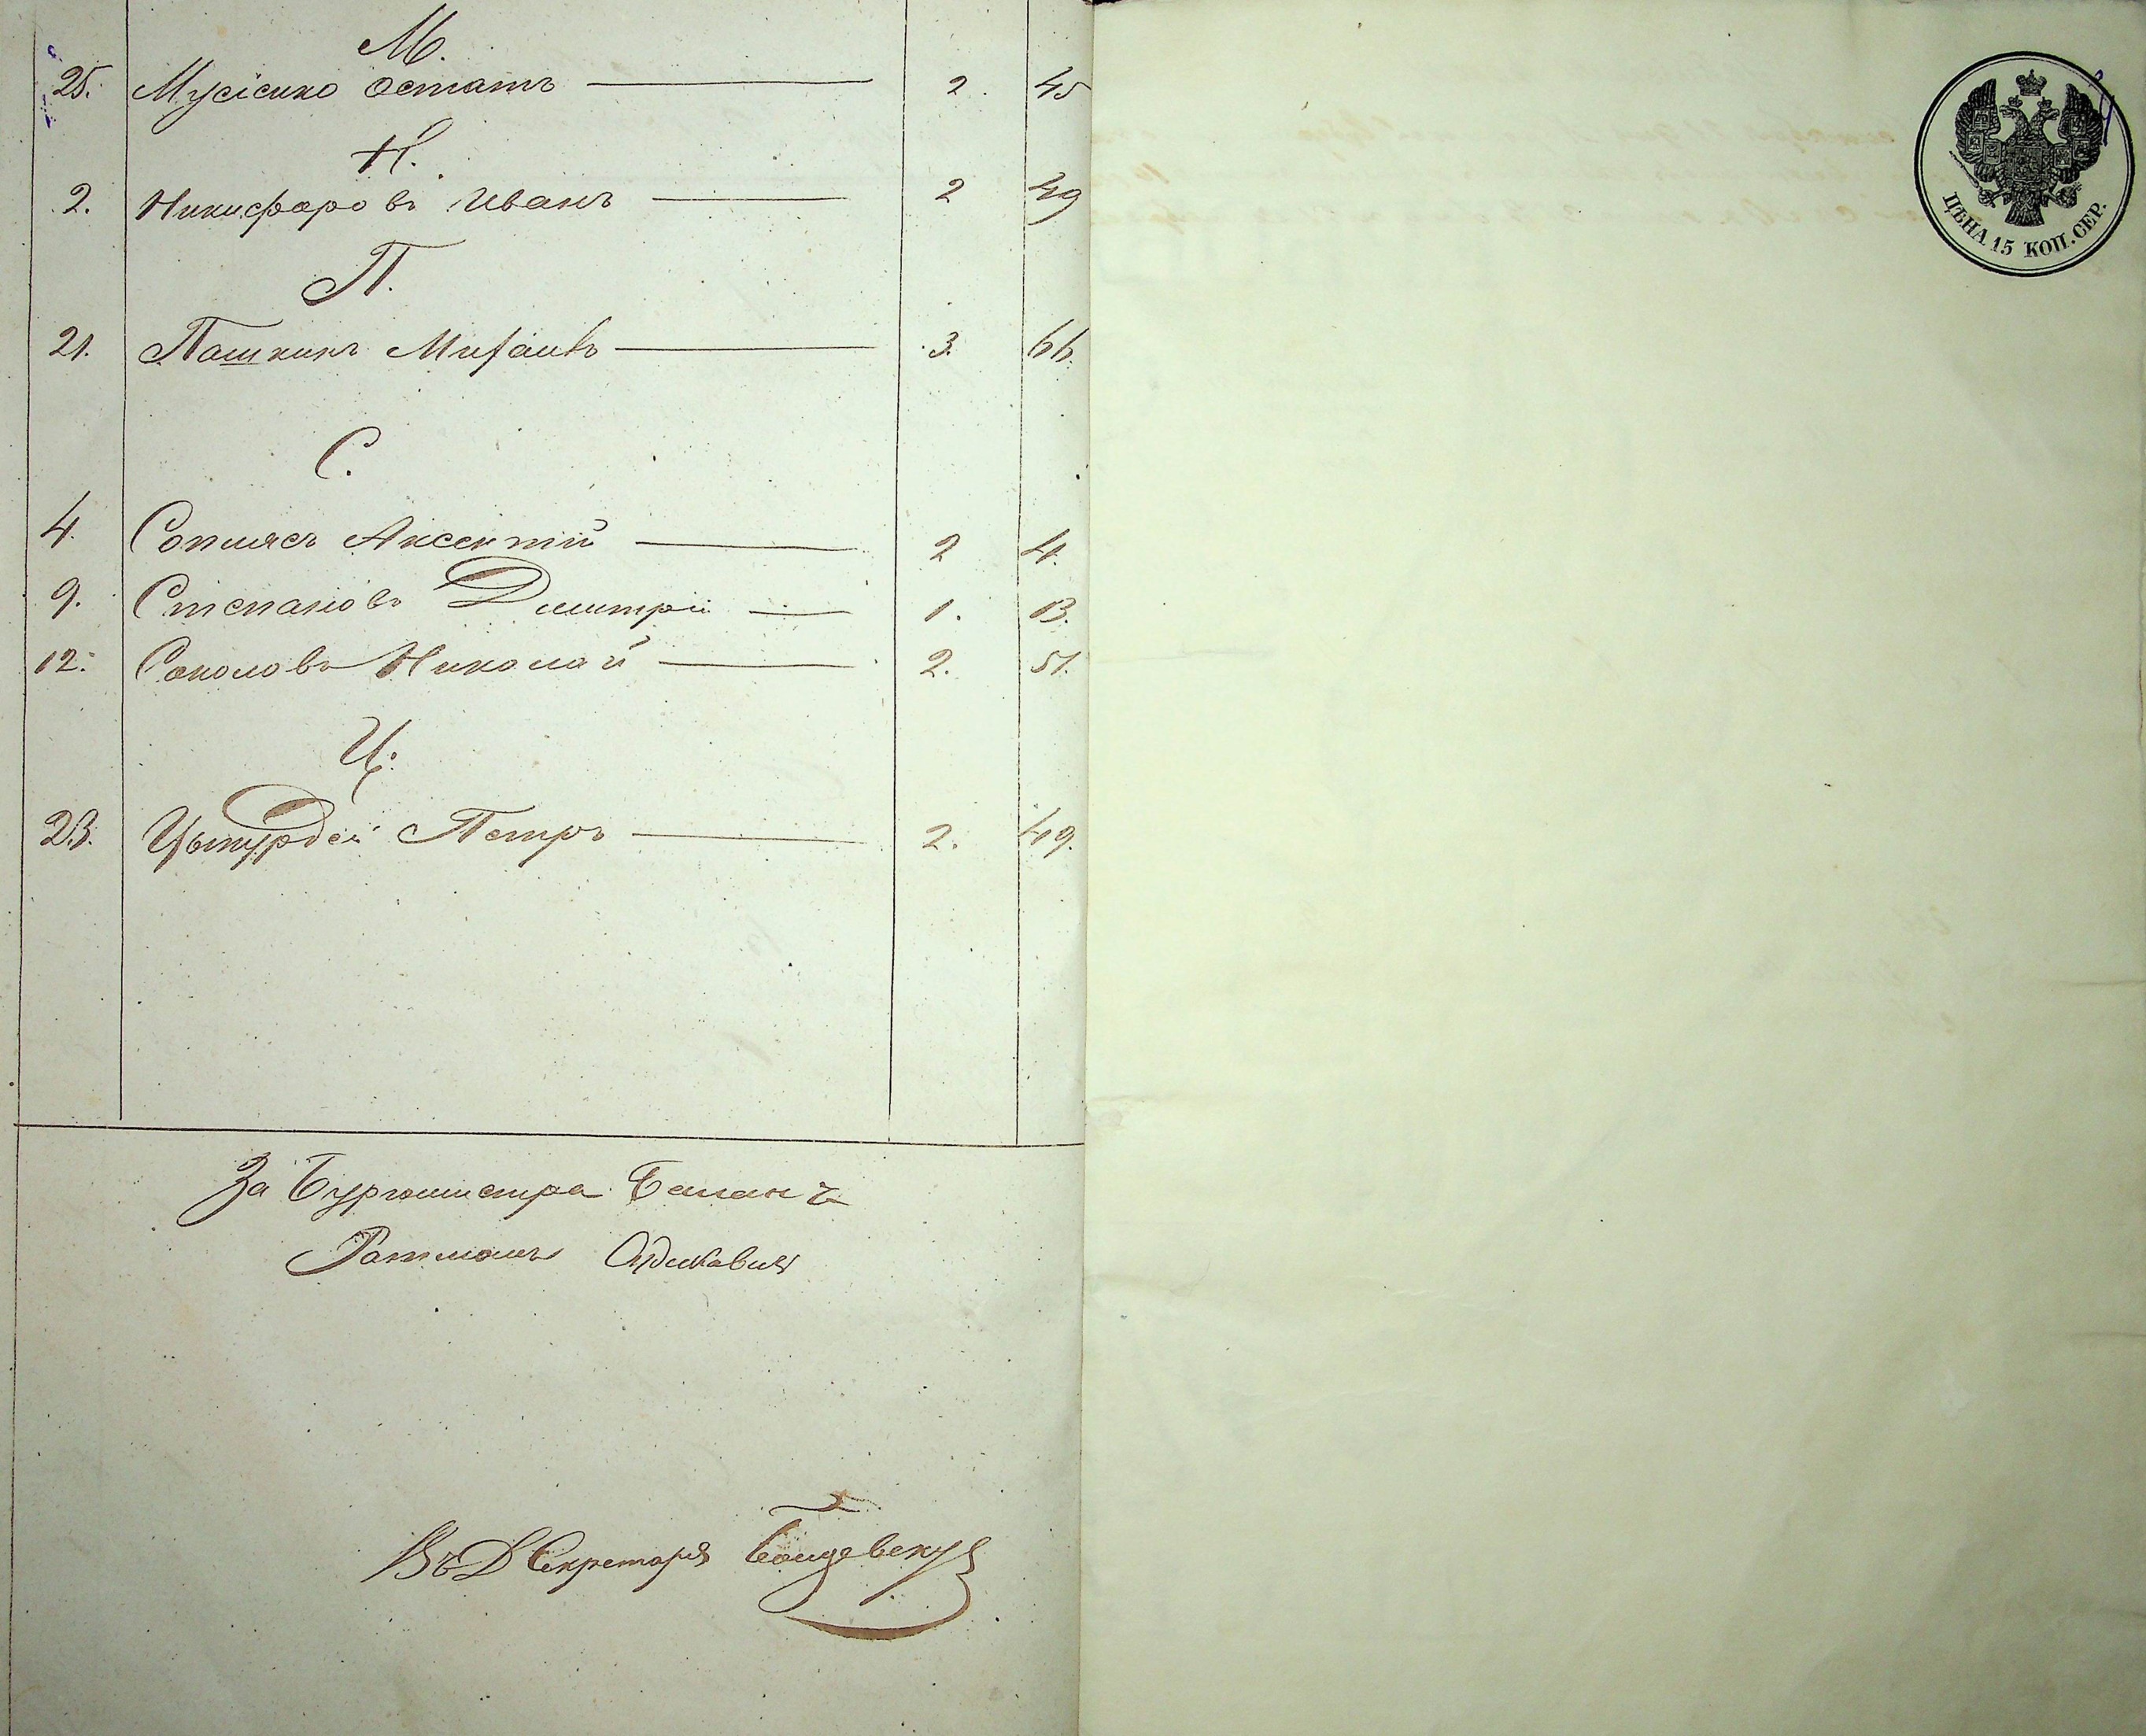 М.
25. Мусіенко Остапъ 2. 45
Н.
2. Никифоровъ Иванъ 2 49
П.
21. Пашкинъ Михаилъ 3. 66.
С.
4. Аксентій 2 4.
9. Степановъ Димитрій 1. 13.
12. Соколовъ Николай 2. 51.
Ц.
23. Петръ 2. 49.
За Бургомистра
Ратманъ
Въ Д Секретаря
ЦѢНА 15 КОП. СЕР.